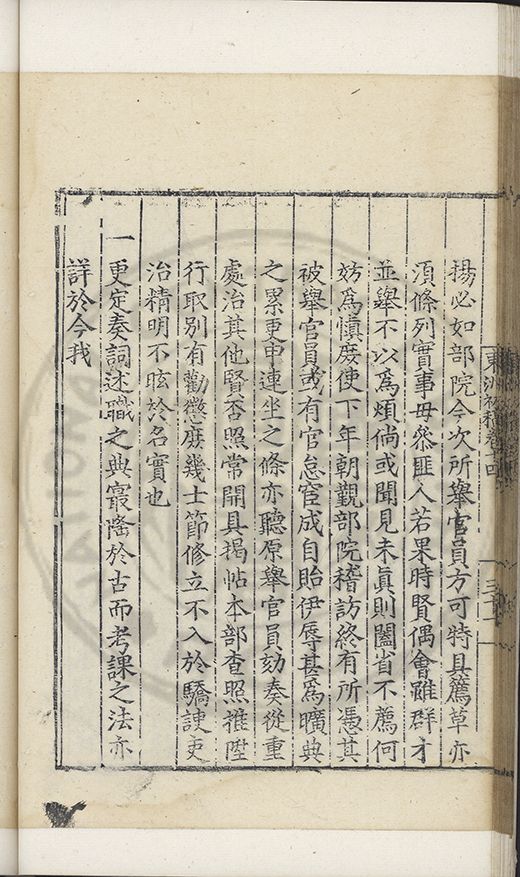 東洲初稿卷十四
揚必如部院今次所舉官員方可特具薦草亦
須條列實事毋參匪人若果時賢偶會雖群才
並舉不以爲煩倘或聞見未眞則闔省不薦何
妨爲愼度使下年朝覲部院稽訪終有所憑其
被舉官員或有官怠宦成自貽伊辱甚爲曠典
之累更申連坐之條亦聽原舉官員劾奏從重
處治其他賢否照常開具揭帖本部查照推陞
行取別有勸懲庶幾士節修立不入於驕諛吏
治精明不眩於名實也
一更定奏詞述職之典寔隆於古而考課之法亦
詳於今我